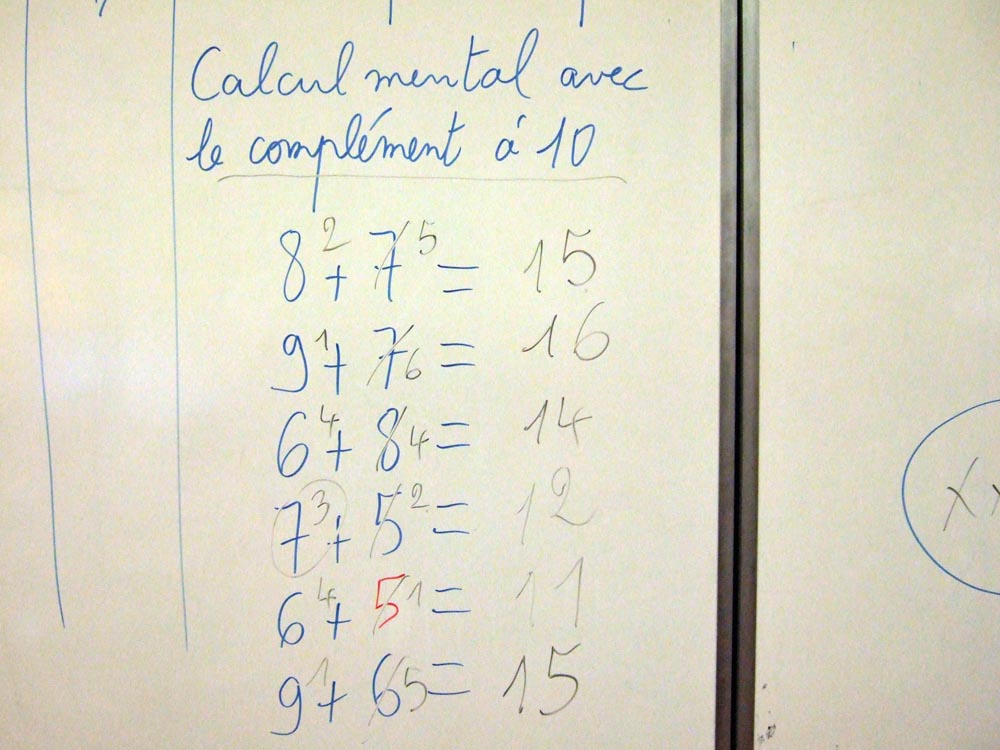 Calcul mental avec
le complément à 10
8² + 7⁵ = 15
9¹ + 7₆ = 16
6⁴ + 8₄ = 14
7³ + 5² = 12
6⁴ + 5¹ = 11
9¹ + 6₅ = 15